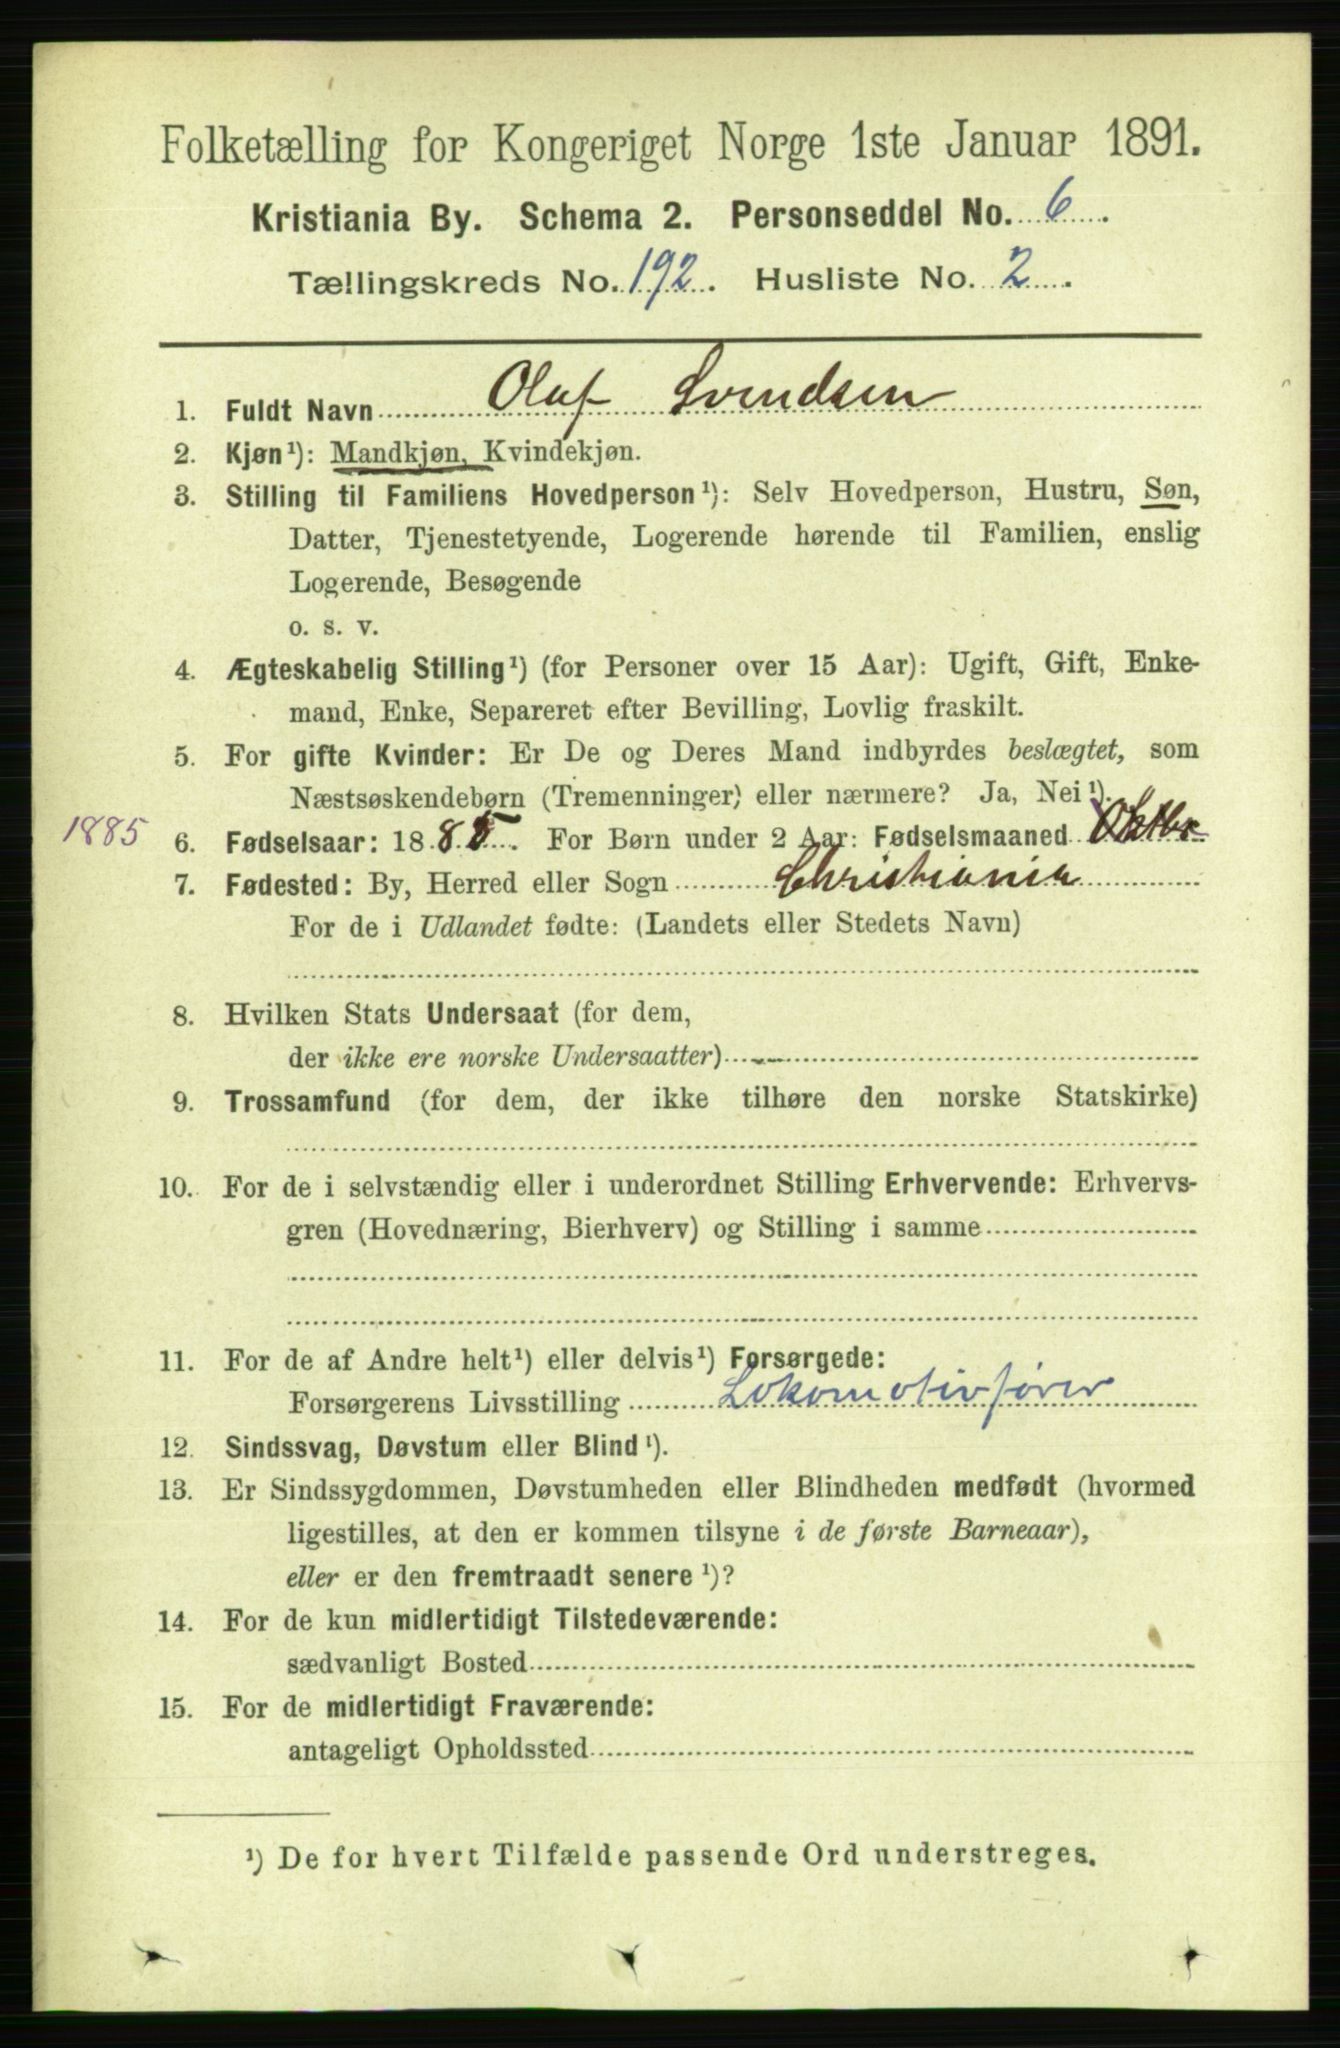 Folketælling for Kongeriget Norge 1ste Januar 1891.
Kristiania By. Schema 2. Personseddel No. 6.
Tællingskreds No. 192. Husliste No. 2.
1. Fuldt Navn Olaf Svendsen
2. Kjøn¹): Mandkjøn, Kvindekjøn.
3. Stilling til Familiens Hovedperson¹): Selv Hovedperson, Hustru, Søn,
Datter, Tjenestetyende, Logerende hørende til Familien, enslig
Logerende, Besøgende
o. s. v.
4. Ægteskabelig Stilling¹) (for Personer over 15 Aar): Ugift, Gift, Enke-
mand, Enke, Separeret efter Bevilling, Lovlig fraskilt.
5. For gifte Kvinder: Er De og Deres Mand indbyrdes beslægtet, som
Næstsøskendebørn (Tremenninger) eller nærmere? Ja, Nei¹).
1885 6. Fødselsaar: 1885. For Børn under 2 Aar: Fødselsmaaned Oktbr
7. Fødested: By, Herred eller Sogn Christiania
For de i Udlandet fødte: (Landets eller Stedets Navn)
8. Hvilken Stats Undersaat (for dem,
der ikke ere norske Undersaatter)
9. Trossamfund (for dem, der ikke tilhøre den norske Statskirke)
10. For de i selvstændig eller i underordnet Stilling Erhvervende: Erhvervs-
gren (Hovednæring, Bierhverv) og Stilling i samme
11. For de af Andre helt¹) eller delvis¹) Forsørgede:
Forsørgerens Livsstilling Lokomotivfører
12. Sindssvag, Døvstum eller Blind¹).
13. Er Sindssygdommen, Døvstumheden eller Blindheden medfødt (hvormed
ligestilles, at den er kommen tilsyne i de første Barneaar),
eller er den fremtraadt senere¹)?
14. For de kun midlertidigt Tilstedeværende:
sædvanligt Bosted
15. For de midlertidigt Fraværende:
antageligt Opholdssted
¹) De for hvert Tilfælde passende Ord understreges.